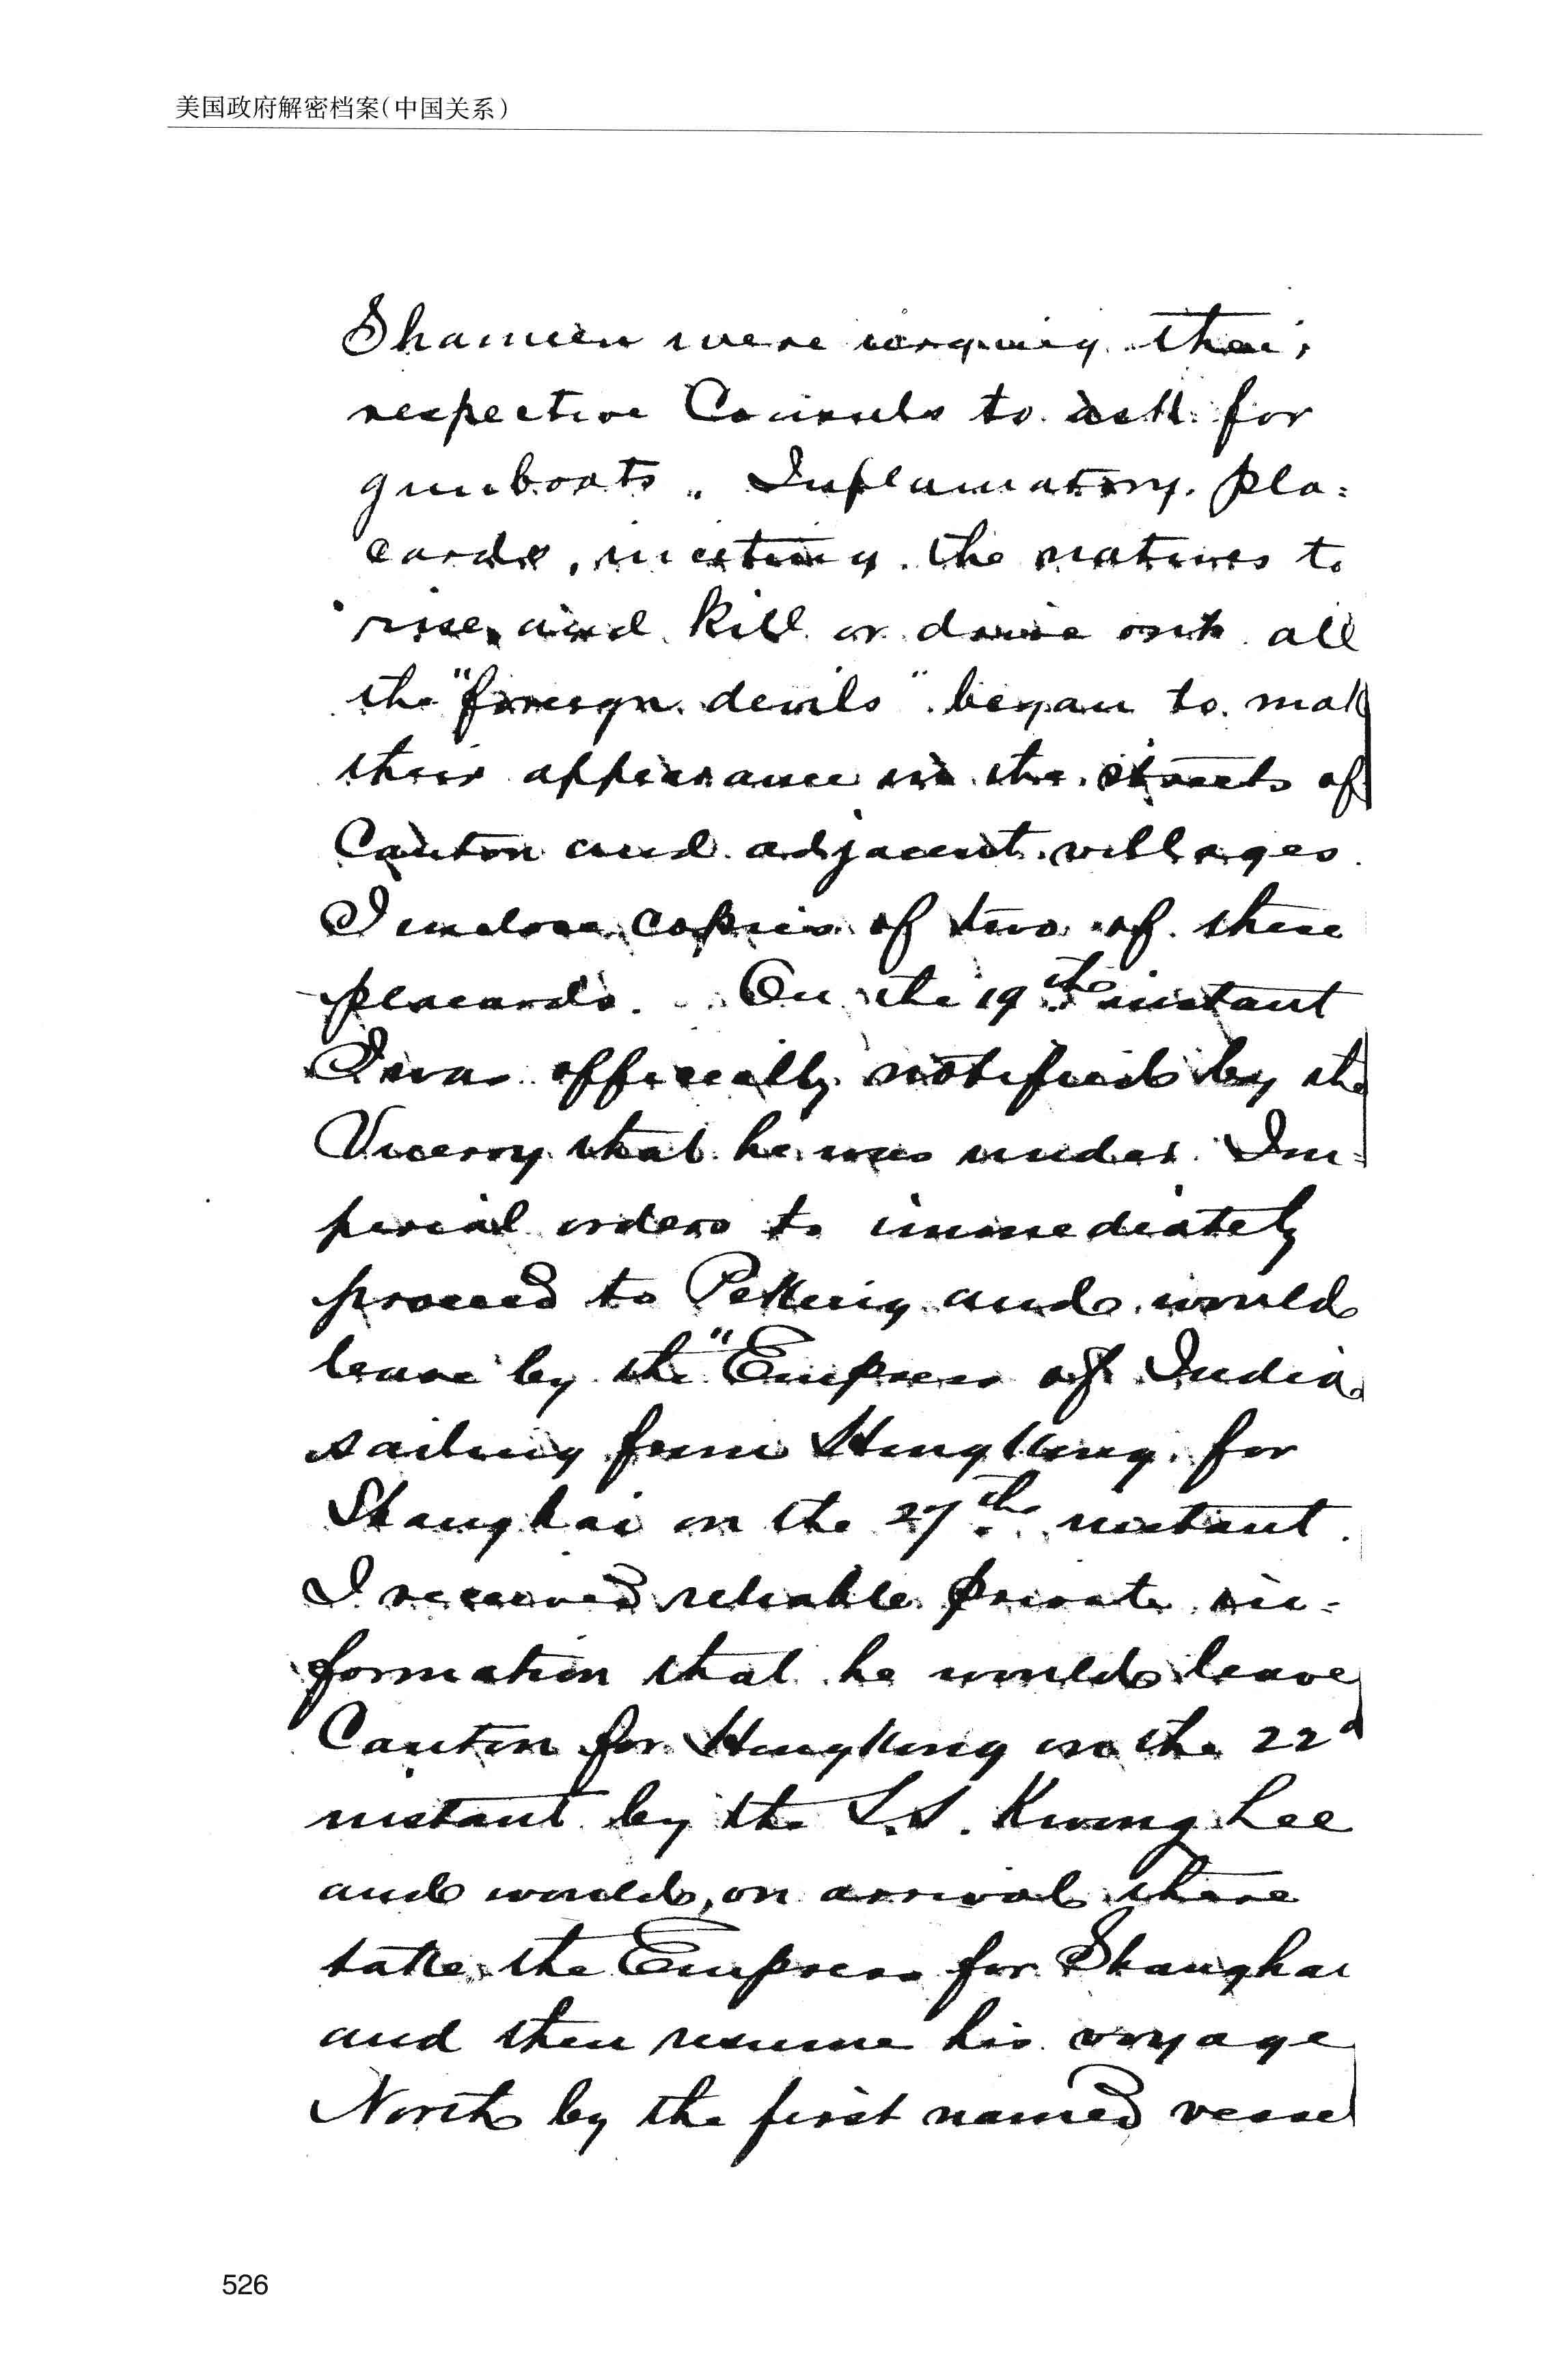 美国政府解密档案(中国关系)
Shameen were urging their
respective Consuls to ask for
gunboats. Inflamatory pla-
cards, inciting the natives to
rise and kill or drive out all
the "foreign devils" began to make
their appearance in the streets of
Canton and adjacent villages.
I enclose copies of two of these
placards. On the 19th instant
I was officially notified by the
Viceroy that he was under Im-
perial orders to immediately
proceed to Peking and would
leave by the "Empress of India
sailing from Hongkong for
Shanghai on the 27th instant.
I received reliable private in-
formation that he would leave
Canton for Hongkong on the 22d
instant by the S.S. Kwong Lee
and would, on arrival there
take the Empress for Shanghai
and then resume his voyage
North by the first named vessel
526